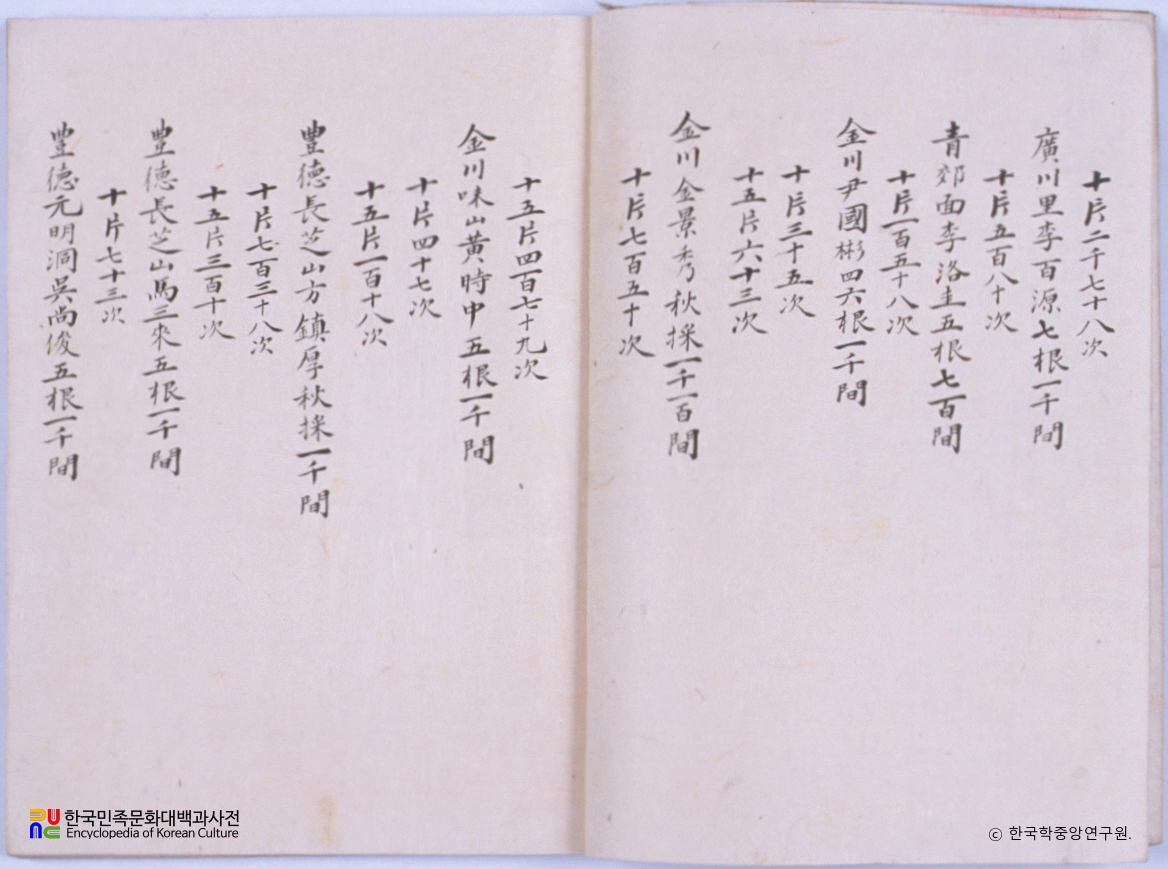 十片二千七十八次
廣川里李百源七根一千間
十片五百八十次
青郊面李洛圭五根七百間
十片一百五十八次
金川尹國彬四六根一千間
十片三十五次
十五片六十三次
金川金景秀秋採一千一百間
十片七百五十次
十五片四百七十九次
金川味山黃時中五根一千間
十片四十七次
十五片一百十八次
豊德長芝山方鎮厚秋採一千間
十片七百三十八次
十五片三百十次
豊德長芝山馬三來五根一千間
十片七十三次
豊德元明洞吳尚俊五根一千間
한국민족문화대백과사전
Encyclopedia of Korean Culture
© 한국학중앙연구원.